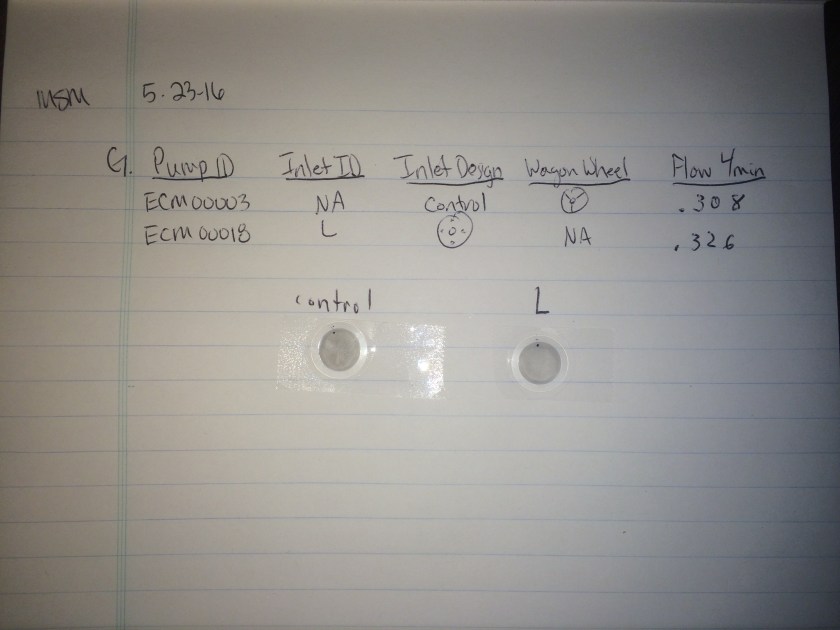 MSM 5.23-16
G. Pump ID Inlet ID Inlet Design Wagon Wheel Flow L/min
ECM00003 NA Control .308
ECM00018 L NA .326
control L